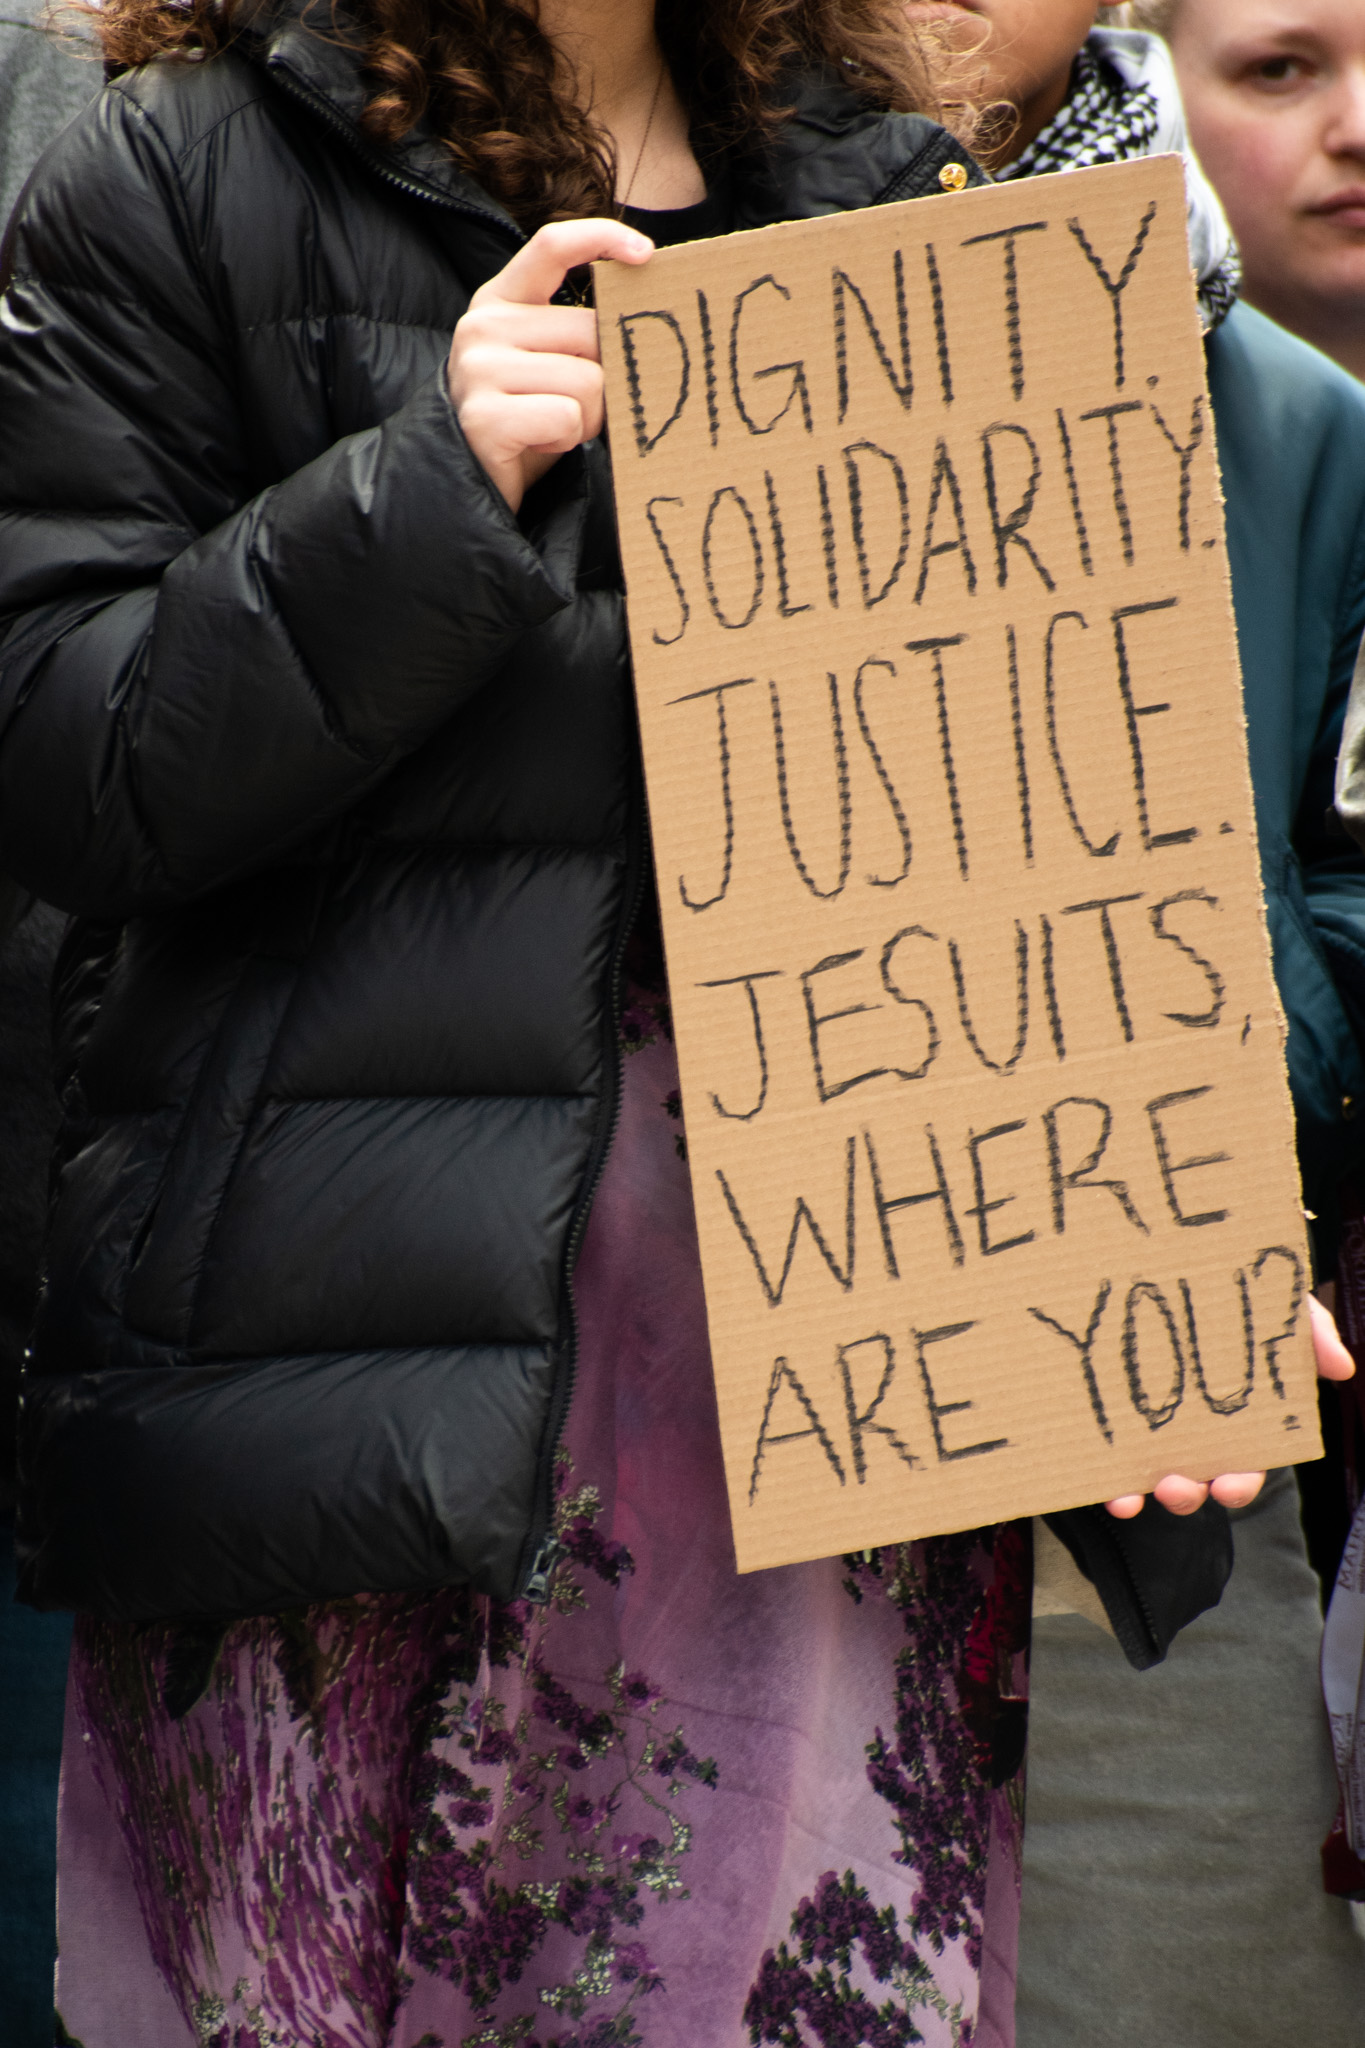 DIGNITY.
SOLIDARITY.
JUSTICE.
JESUITS,
WHERE
ARE YOU?